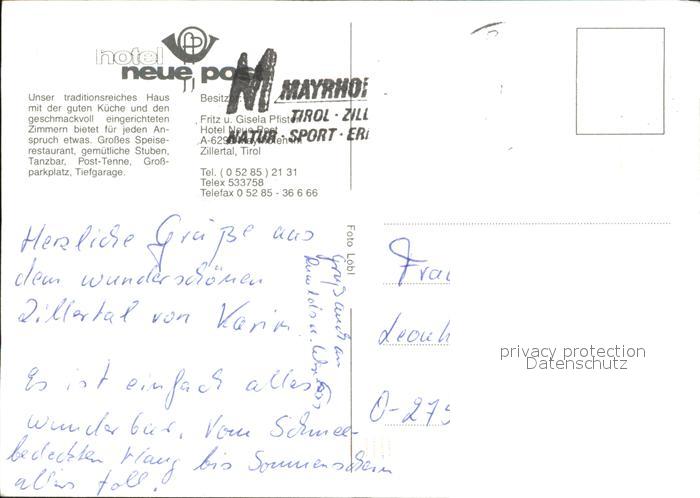 hotel
neue post
Unser traditionsreiches Haus
mit der guten Küche und den
geschmackvoll eingerichteten
Zimmern bietet für jeden An-
spruch etwas. Großes Speise-
restaurant, gemütliche Stuben,
Tanzbar, Post-Tenne, Groß-
parkplatz, Tiefgarage.
Besitzer:
Fritz u. Gisela Pfister
Hotel Neue Post
A-6290 Mayrhofen im
Zillertal, Tirol
Tel. ( 0 52 85 ) 21 31
Telex 533758
Telefax 0 52 85 - 36 6 66
M MAYRHOF
TIROL · ZILL
NATUR · SPORT · ER
Herzliche Grüße aus
dem wunderschönen
Zillertal von Karin.
Es ist einfach alles
wunderbar. Vom Schnee-
bedeckten Hang bis Sonnenschein
alles toll.
Gruß auch an
Foto Löbl
Frau
Leonh
O-275
privacy protection
Datenschutz